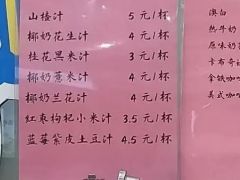 山楂汁 5 元/杯
椰奶花生汁 4 元/杯
桂花黑米汁 3 元/杯
椰奶薏米汁 4 元/杯
椰奶兰花汁 4 元/杯
红枣枸杞小米汁 3.5 元/杯
蓝莓紫皮土豆汁 4.5 元/杯
澳白
热牛奶
原味奶
卡布奇
拿铁咖
美式咖